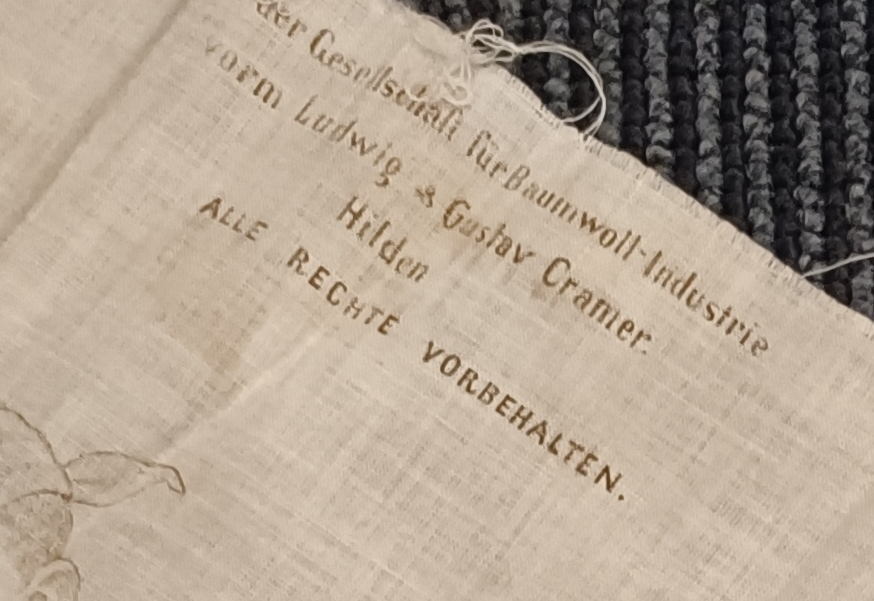 der Gesellschaft für Baumwoll-Industrie
vorm Ludwig & Gustav Cramer.
Hilden
ALLE RECHTE VORBEHALTEN.